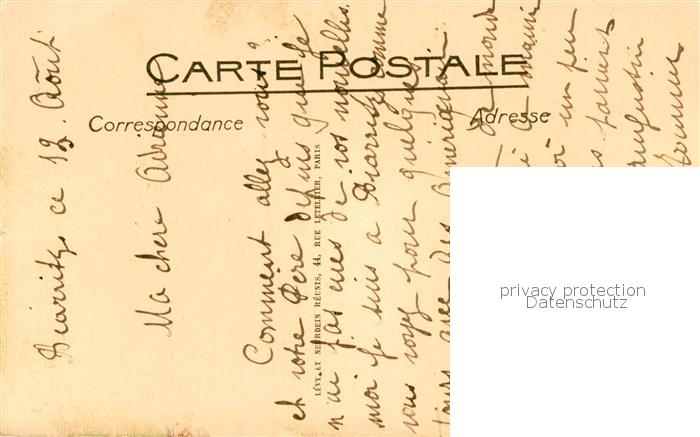 CARTE POSTALE
Correspondance
Adresse
LÉVY ET NEURDEIN RÉUNIS, 44, RUE LETELLIER, PARIS
Biarritz ce 19. Août
Ma chère Adrienne
Comment allez vous?
et votre Père depuis que je
n'ai pas eues de vos nouvelles.
moi je suis a Biarritz comme
vous voyez pour quelques
jours avec des Américains
monde
a la main
un peu
Augustin
privacy protection
Datenschutz